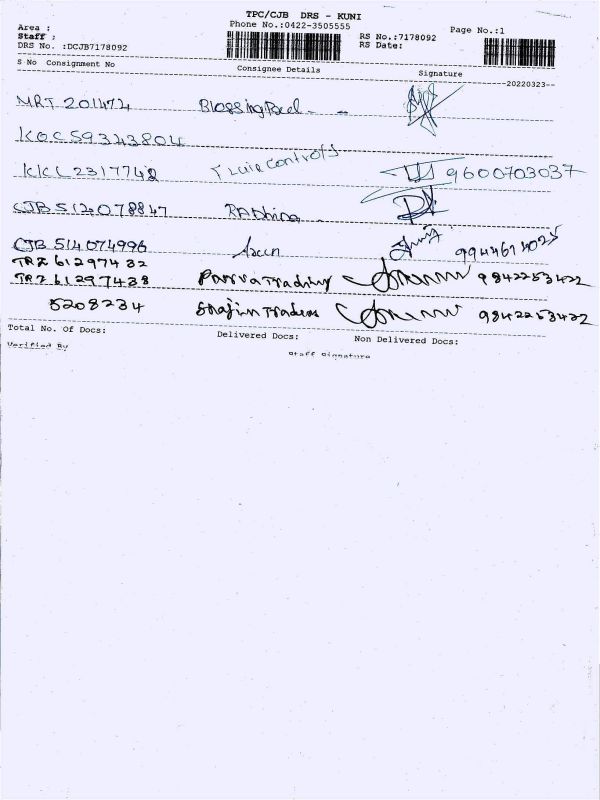 TPC/CJB DRS - KUNI
Area : Phone No.:0422-3505555 Page No.:1
Staff : RS No.:7178092
DRS No. :DCJB7178092 RS Date:
S No Consignment No Consignee Details Signature
20220323
MRT 201474
KOC59343804
KKL2317742 Fluid Controls 9600703037
CJB 514078847
CJB 514074996 Arun 9944614025
TRZ 61297432
TRZ 61297438 Parsva Trading 9842253422
5208234 Shajin Traders 9842253422
Total No. Of Docs: Delivered Docs: Non Delivered Docs:
Verified By Staff Signature